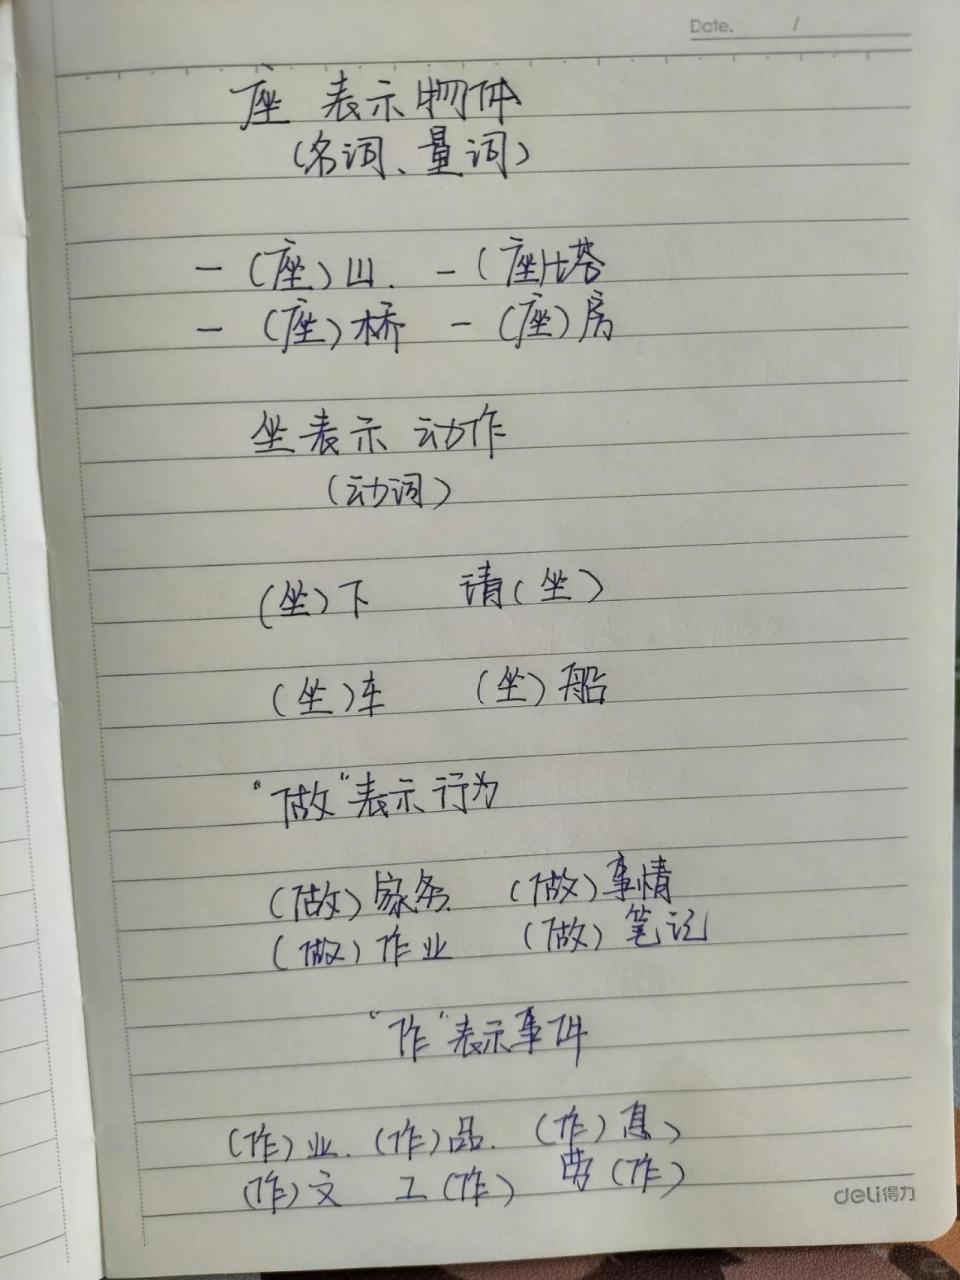 Date. /
座 表示物件
(名词、量词)
一(座)山. 一(座)塔
一(座)桥 一(座)房
坐表示 动作
(动词)
(坐)下 请(坐)
(坐)车 (坐)船
“做”表示行为
(做)家务 (做)事情
(做)作业 (做)笔记
“作”表示事件
(作)业. (作)品. (作)息、
(作)文 工(作) 劳(作)
deli得力